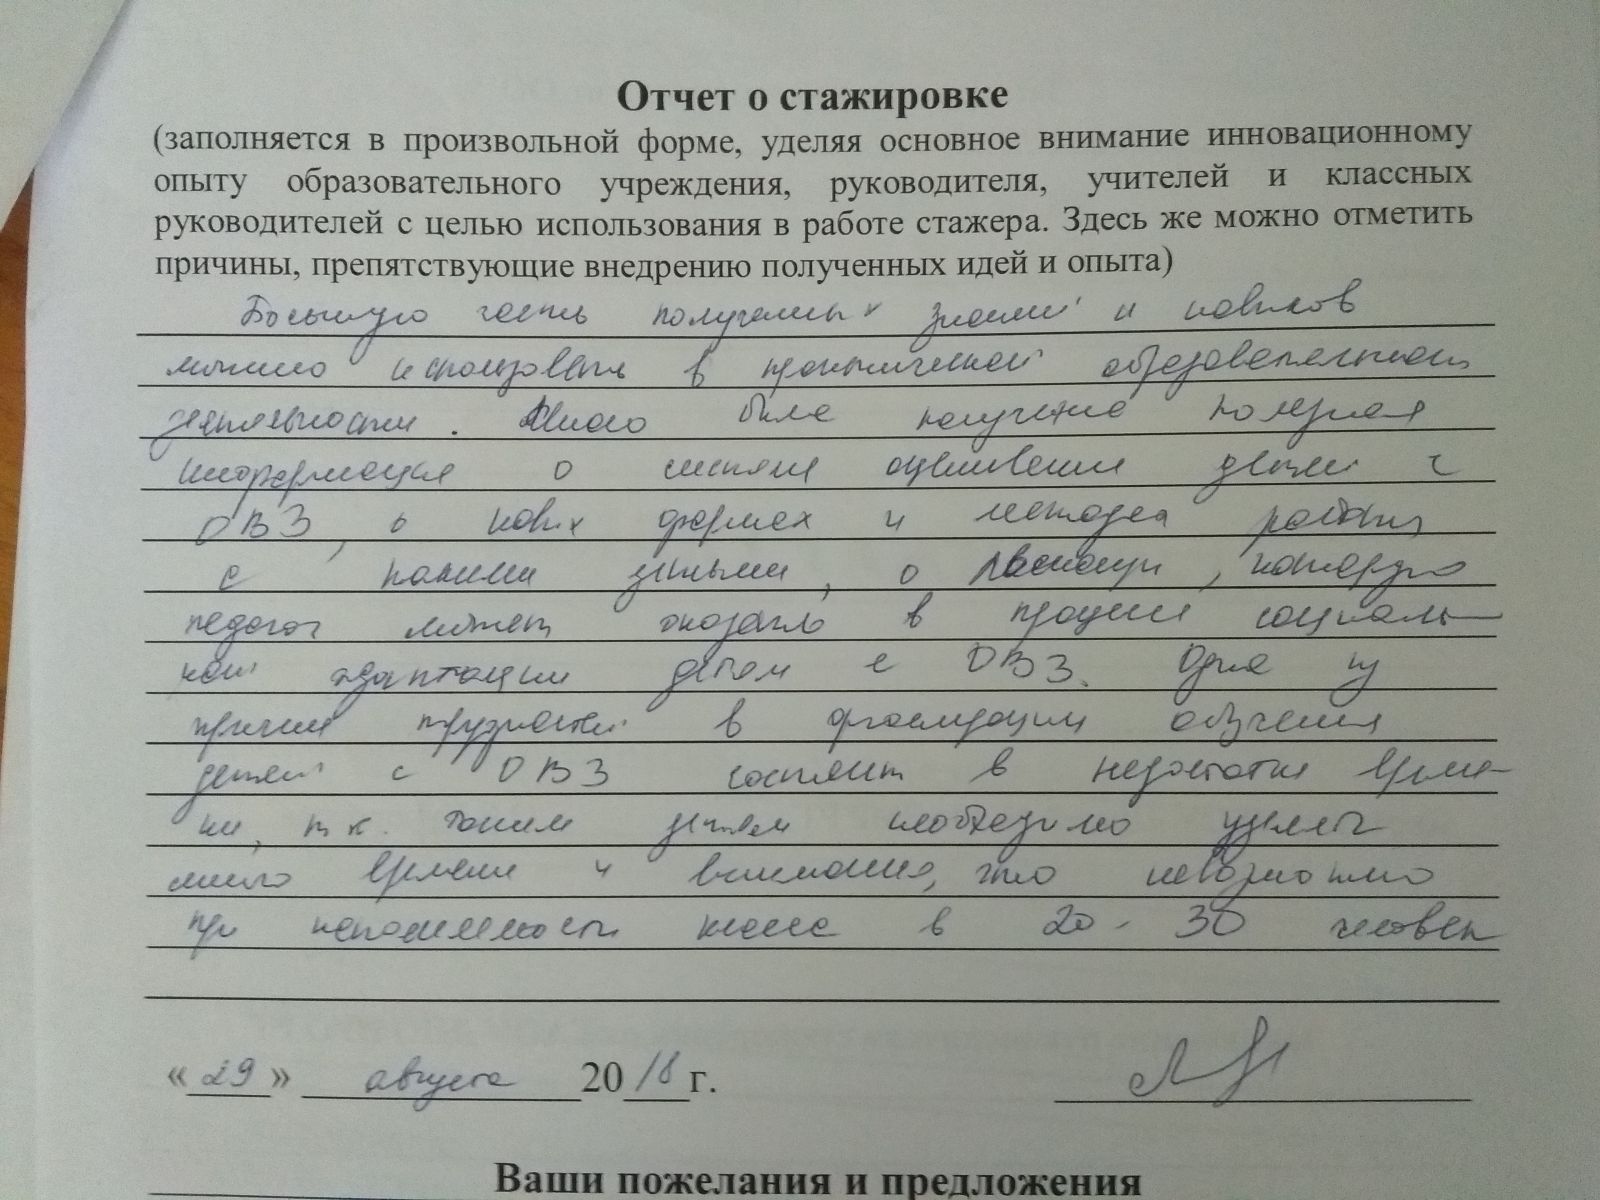 Отчет о стажировке
(заполняется в произвольной форме, уделяя основное внимание инновационному
опыту образовательного учреждения, руководителя, учителей и классных
руководителей с целью использования в работе стажера. Здесь же можно отметить
причины, препятствующие внедрению полученных идей и опыта)
Большую часть полученных знаний и навыков
можно использовать в практической образовательной
деятельности. Много было получено полезная
информация о системе оценивания детей с
ОВЗ, о новых формах и методах работы
с такими детьми, о помощи, которую
педагог может оказать в процессе социаль-
ной адаптации детям с ОВЗ. Одна из
причин трудностей в организации обучения
детей с ОВЗ состоит в недостатке време-
ни, т.к. таким детям необходимо уделять
много времени и внимания, что невозможно
при наполняемости класса в 20 - 30 человек
«29» августа 2018 г.
Ваши пожелания и предложения